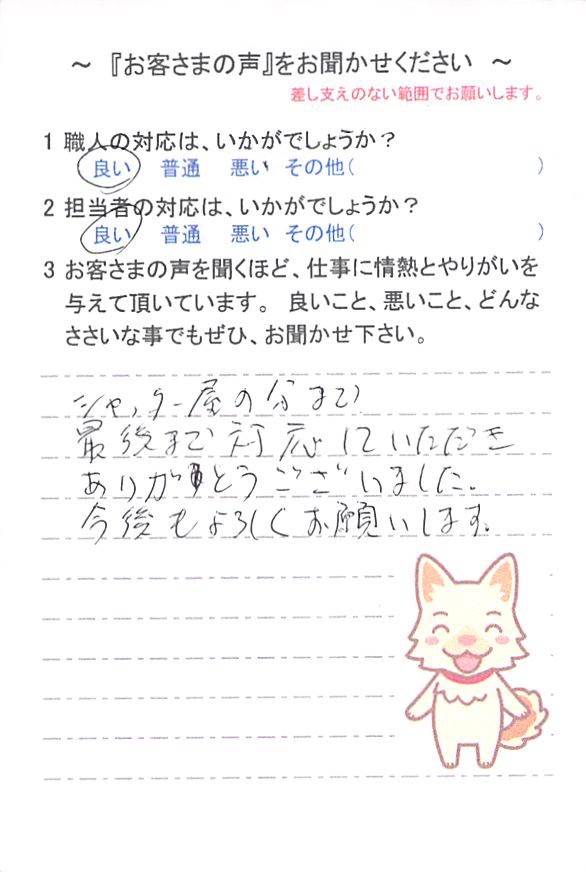 ～ 『お客さまの声』をお聞かせください ～
差し支えのない範囲でお願いします。
1 職人の対応は、いかがでしょうか？
良い 普通 悪い その他( )
2 担当者の対応は、いかがでしょうか？
良い 普通 悪い その他( )
3 お客さまの声を聞くほど、仕事に情熱とやりがいを
与えて頂いています。 良いこと、悪いこと、どんな
ささいな事でもぜひ、お聞かせ下さい。
シャッター屋の分まで
最後まで対応していただき
ありがとうございました。
今後もよろしくお願いします。